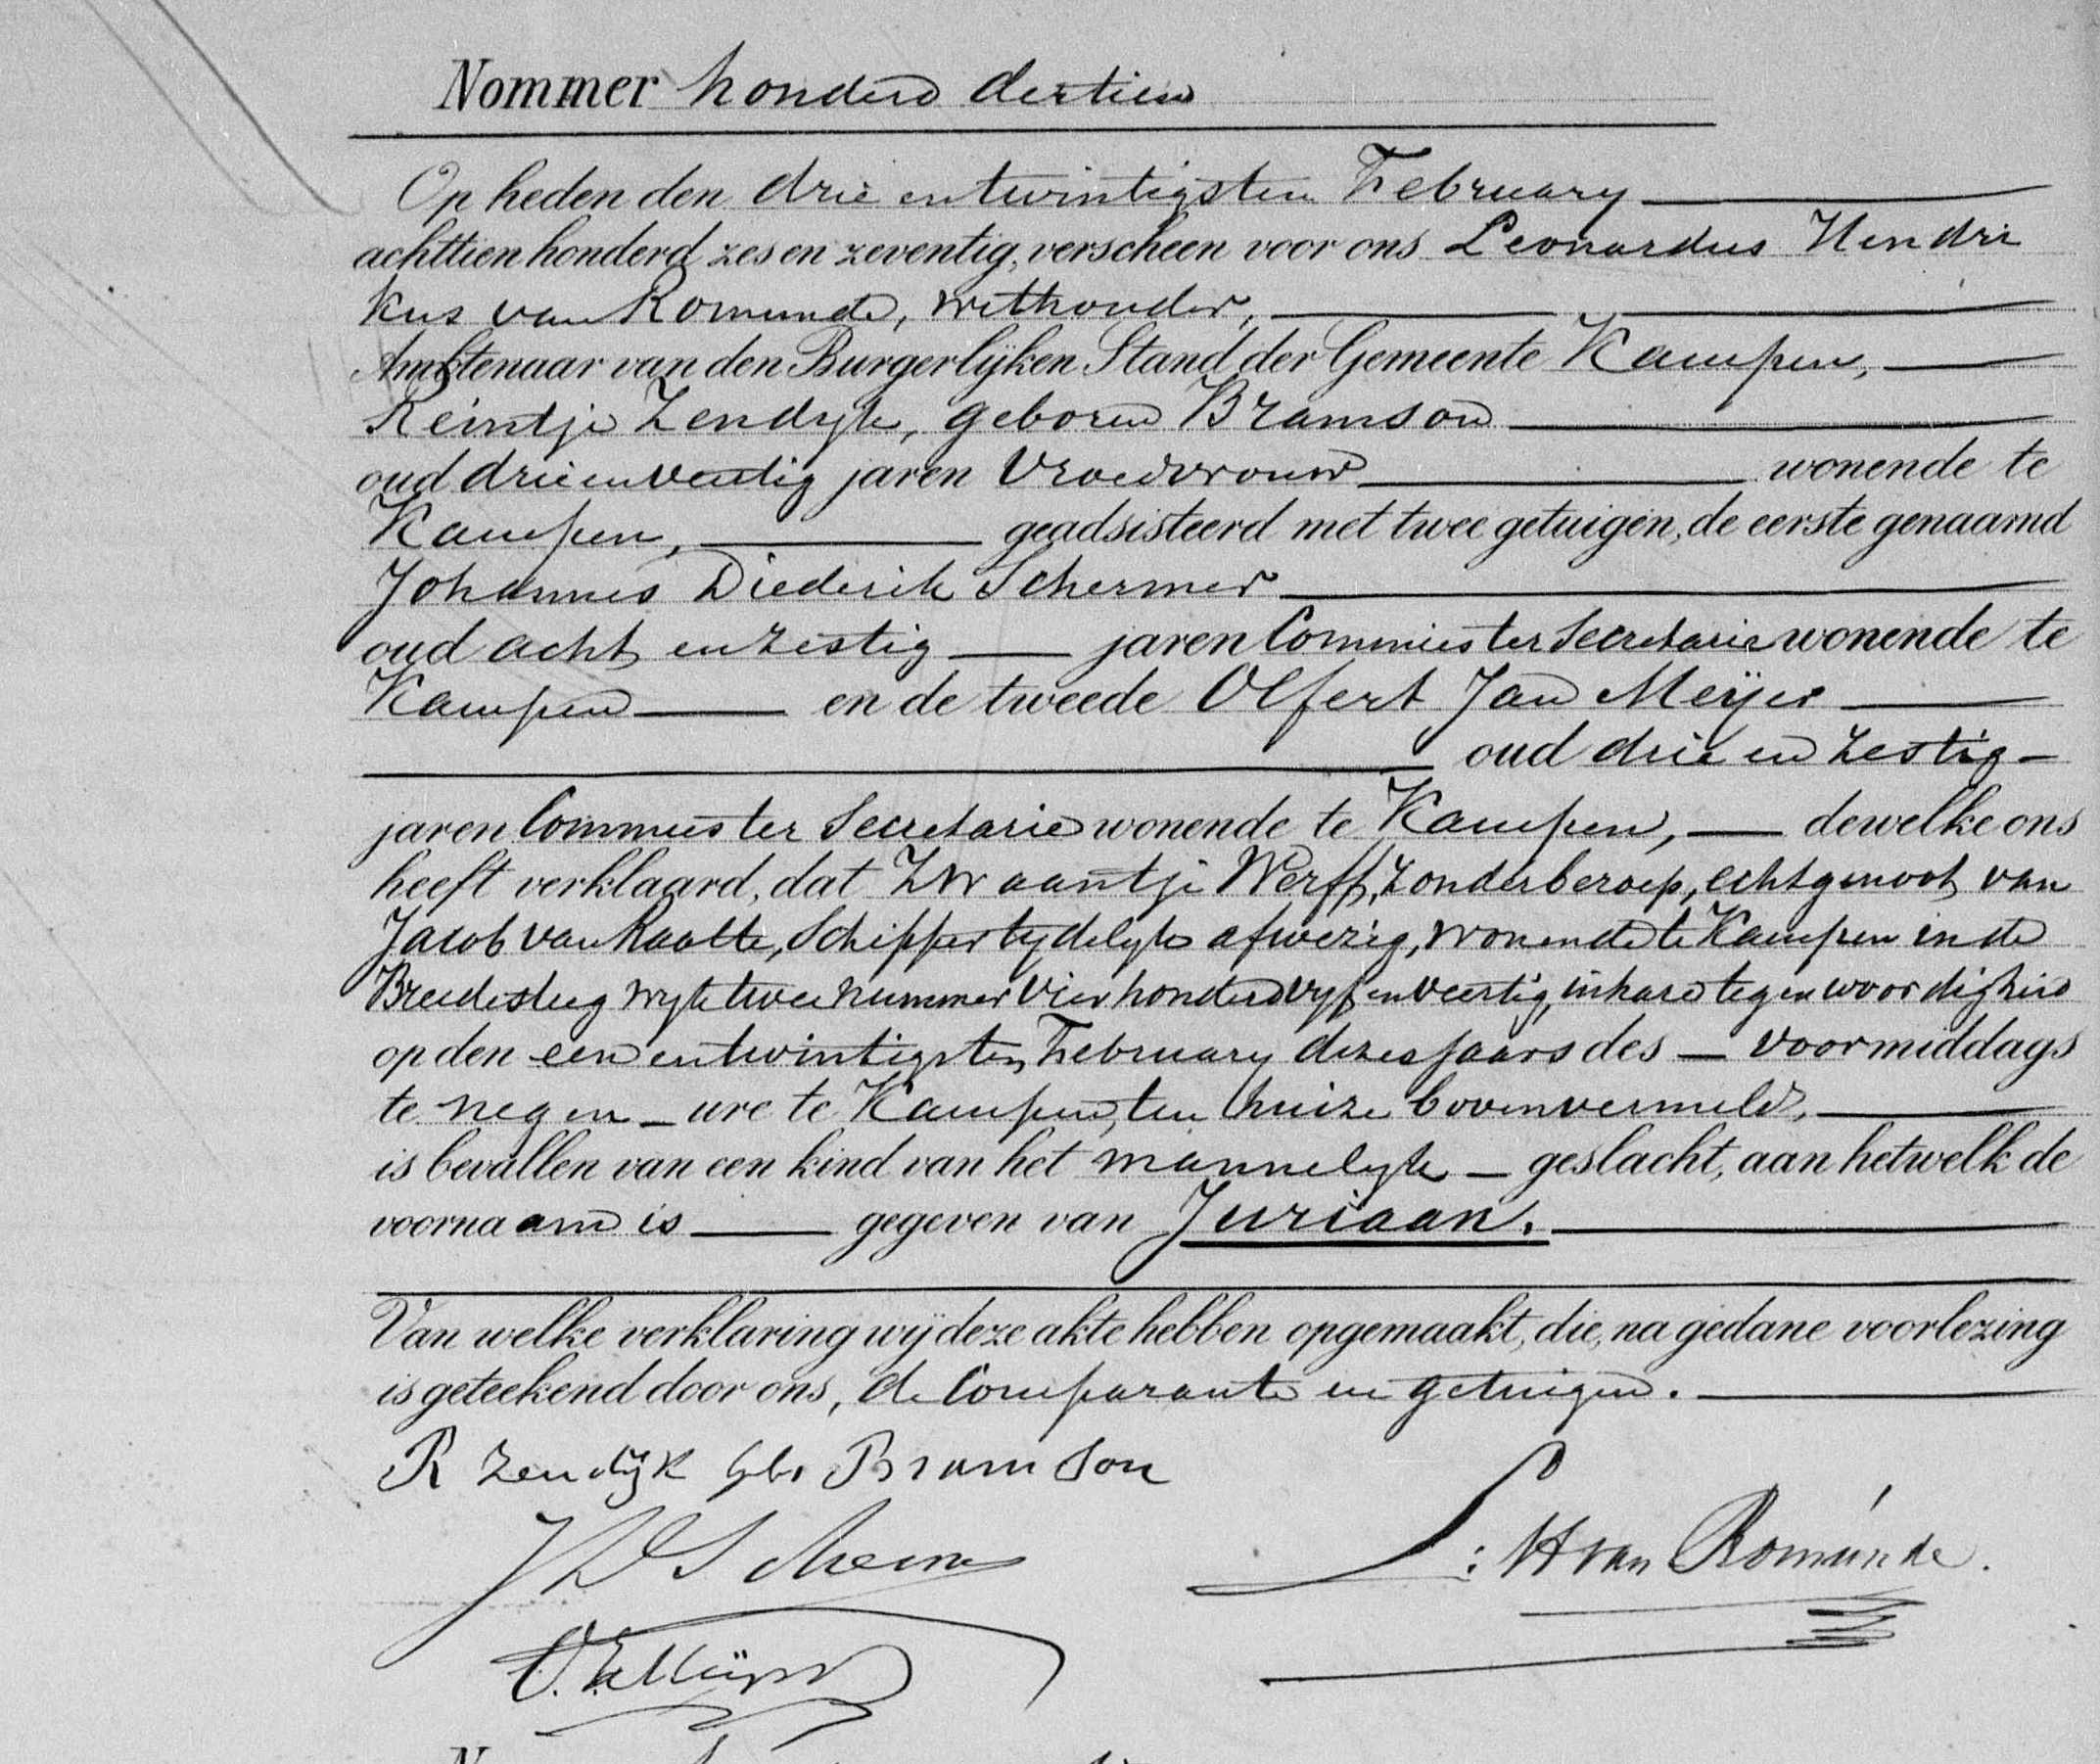 Nommer honderd dertien
Op heden den drie en twintigsten February
achttien honderd zes en zeventig, verscheen voor ons Leonardus Hendri
kus van Romunde, wethouder,
Ambtenaar van den Burgerlijken Stand der Gemeente Kampen,
Reintje Zendyk, geboren Bramson
oud drie en veertig jaren Vroedvrouw wonende te
Kampen, geadsisteerd met twee getuigen, de eerste genaamd
Johannes Diederik Schermer
oud acht en zestig jaren Commies ter Secretarie wonende te
Kampen en de tweede Olfert Jan Meijer
oud drie en zestig
jaren Commies ter Secretarie wonende te Kampen, dewelke ons
heeft verklaard, dat Zwaantje Werff, zonder beroep, echtgenoot van
Jacob van Raalte, Schipper tydelyk afwezig, wonende te Kampen in de
Breedesteeg wyk twee nummer vier honderd vyf en veertig, in hare tegenwoordigheid
op den een en twintigsten February dezes jaars des voormiddags
te negen ure te Kampen, ten huize bovenvermeld,
is bevallen van een kind van het mannelyk geslacht, aan hetwelk de
voornaam is gegeven van Juriaan.
Van welke verklaring wij deze akte hebben opgemaakt, die, na gedane voorlezing
is geteekend door ons, de Comparante en getuigen.
R Zendijk geb. Bramson
J D Scherm
L: H van Romunde.
O. J. Meijer